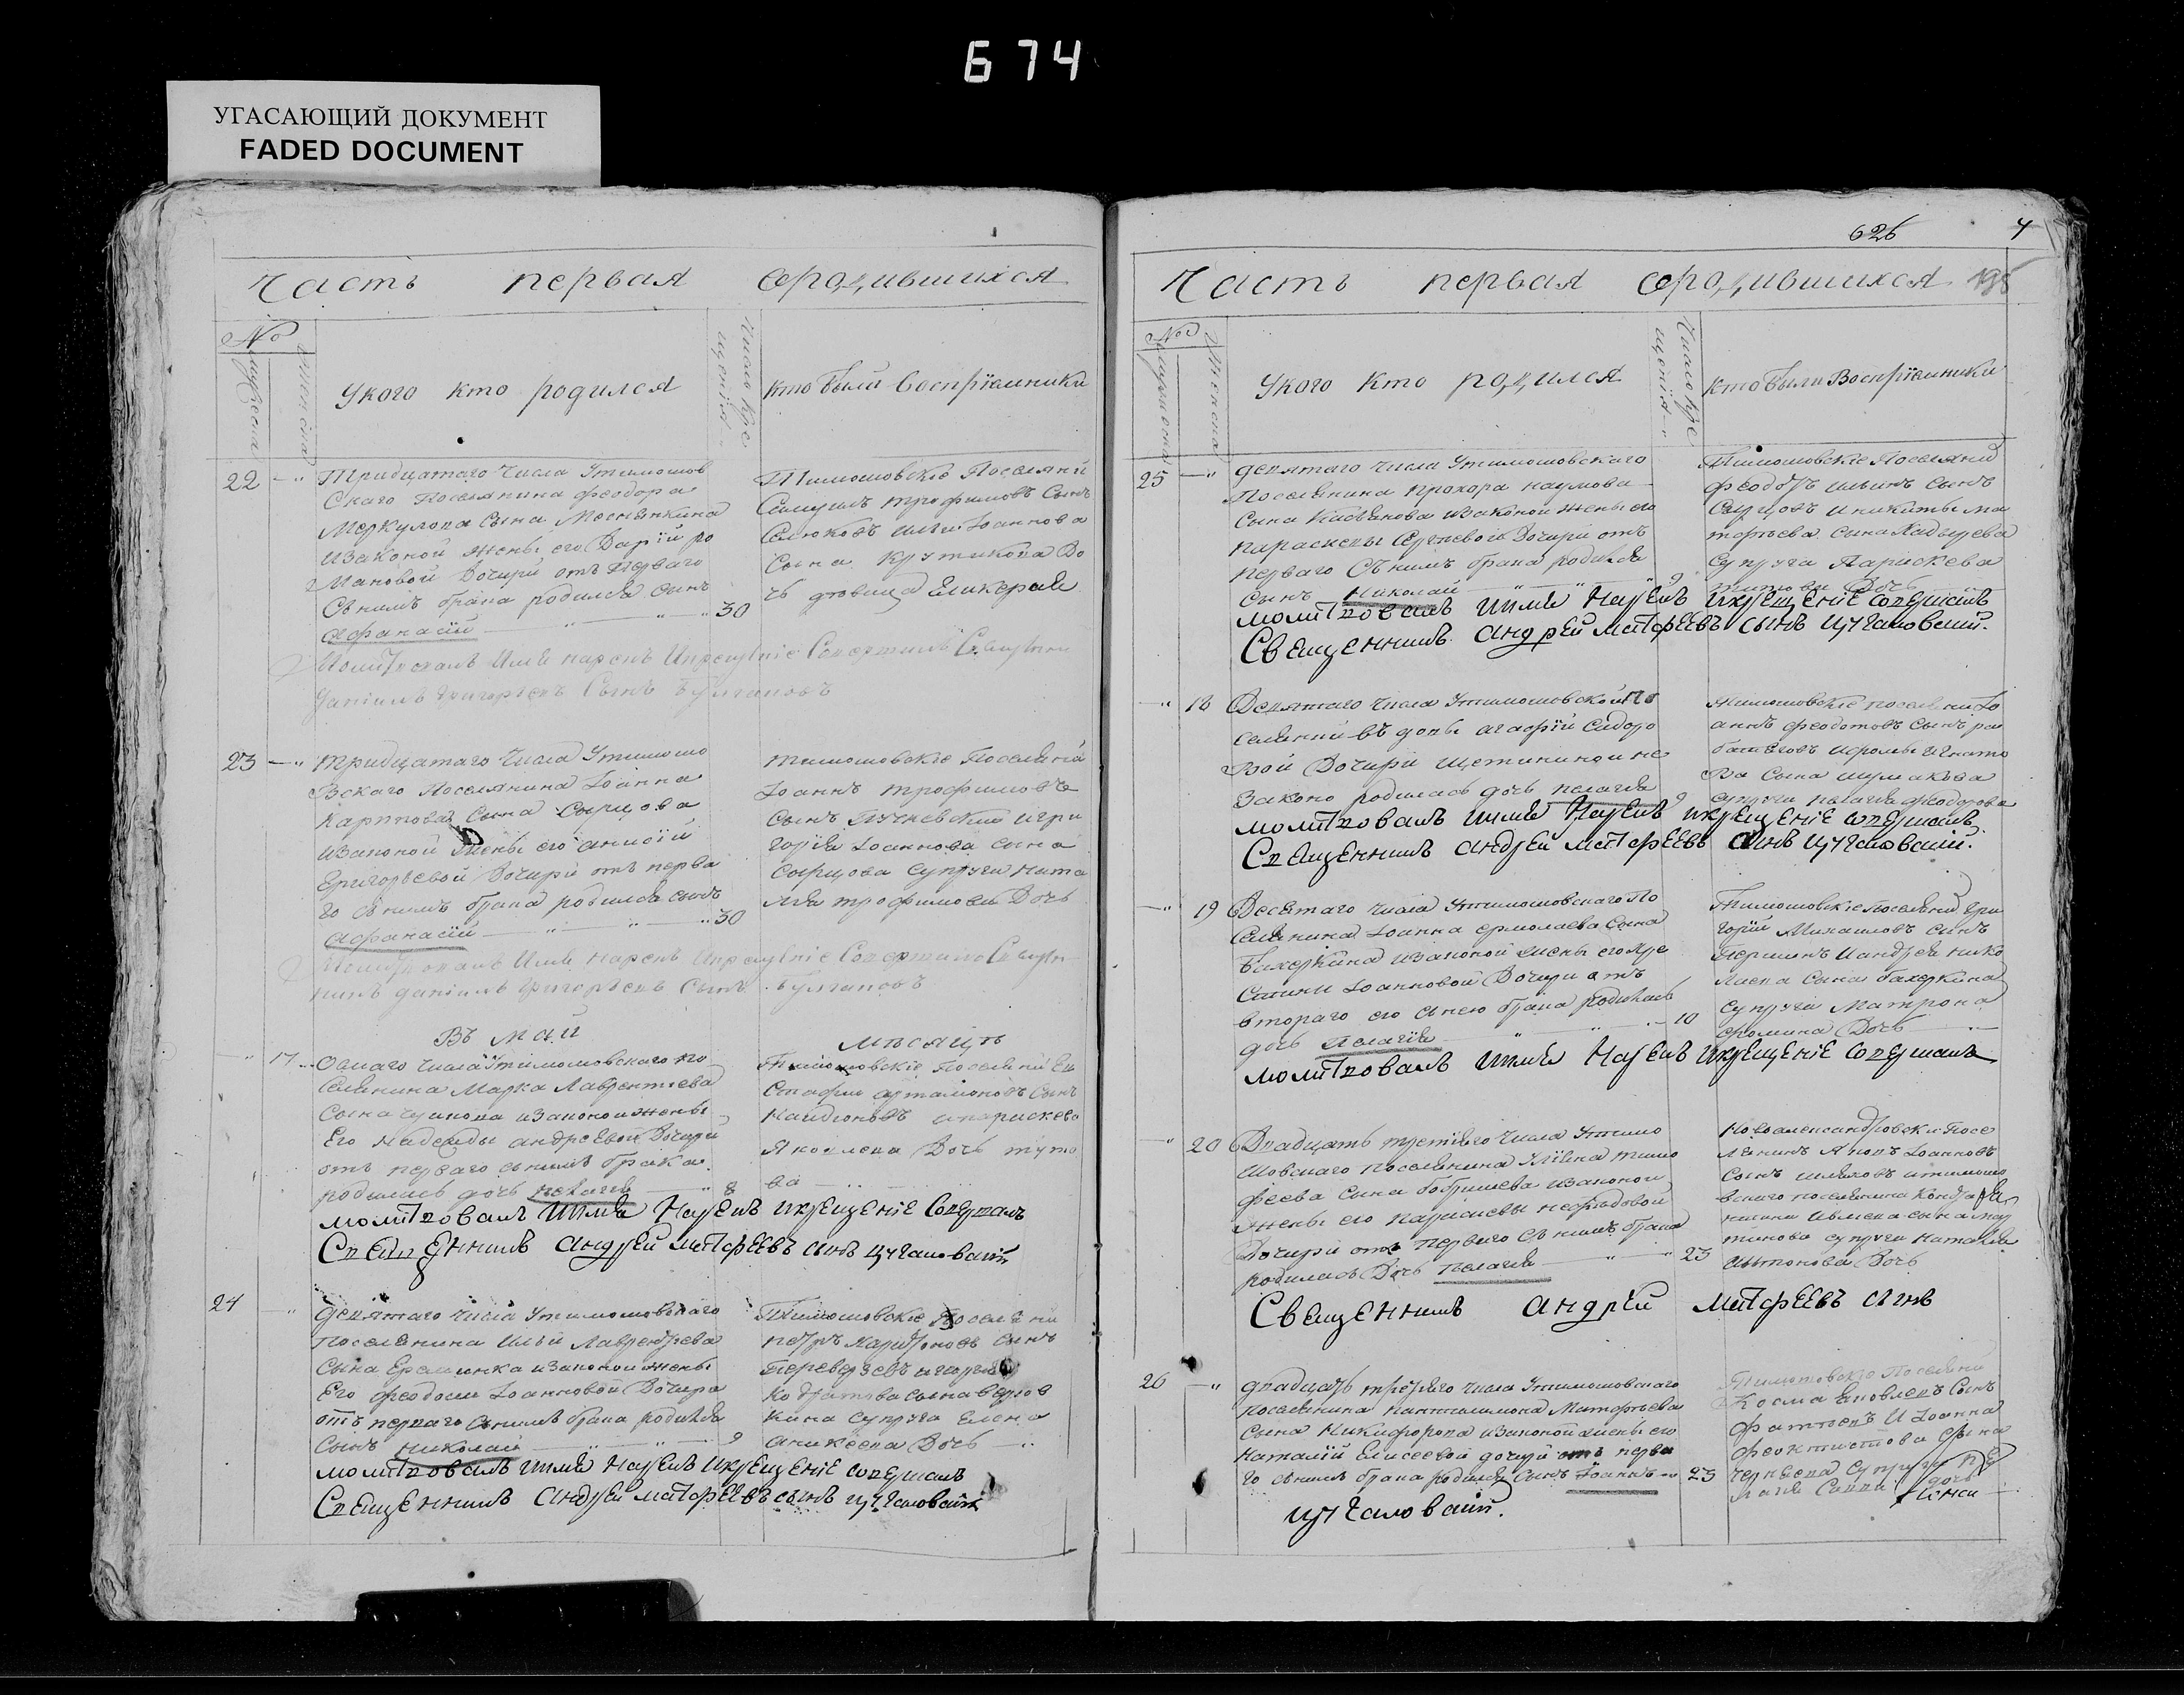 674
УГАСАЮЩИЙ ДОКУМЕНТ
FADED DOCUMENT
Часть первая ородившихся
№
У кого кто родился
Число кре
щенiя
кто были воспрiемники
22
Тридцатаго числа Утимошов
скаго Поселянина Феодора
Меркулова сына
изаконой жены его Дарiй Ро
мановой Дочери отъ перваго
Снимъ брака родился сынъ
Афанасiй 30
Тимошовскiе Поселяни
Самуилъ трофимовъ Сынъ
Селюковъ Iоаннова
Сына Крутикова До
чь девица Гликерая
Молитвовалъ Имя нарекъ Икрещенiе Совершилъ Священ
Данiилъ Григорьевъ Сынъ Булгаковъ
23
тридцатаго числа Утимошо
вскаго Поселянина Iоанна
Карпова Сына Сырцова
изаконой жены его
Григорьевой Дочери отъ перва
го Снимъ брака родился сынъ
Афанасiй 30
тимошовскiе Поселяна
Iоаннъ трофимовъ
Сынъ Пучневскiй Игри
горiя Iоаннова сына
Сырцова супруга Ната
лiя трофимова Дочь
Молитвовалъ Имя нарекъ Икрещенiе Совершилъ Священ
никъ Данiилъ Григорьевъ Сынъ Булгаковъ
Въ май мѣсяцъ
17
Осмаго числа Утимошовскаго по
селянина Марка Лаврентьева
Сына изаконои жены
Его Надежды Андреевой Дочери
отъ перваго снимъ брака
родилась дочь пелагея 8
Тимошовскiе Поселяни Ев
стафiй артамоновъ Сынъ
Найдюновъ ипарискева
Яковлева Дочь туто
ва
молитвовалъ имя Нарекъ икрещенiе Совершалъ
Священникъ Андрей Матфеевъ сынъ Цугаловскiй
24
девятаго числа Утимошовскаго
Поселянина Ильи Лаврентьева
Сына изаконой жены
Его феодосiи Iоанновой Дочери
отъ перваго Снимъ брака родился
сынъ Николай 9
Тимошовскiе Поселяни
петръ Сынъ
Переверзевъ игеоргiя
Сына
супруга Елена
Аникеева Дочь
молитвовалъ имя Нарекъ икрещенiе совершалъ
Священникъ Андрей Матфеевъ сынъ Цугаловскiй
626 4
Часть первая ородившихся
№
У кого кто родился
Число кре
щенiя
кто были Воспрiемники
25
девятаго числа Утимошовскаго
Поселянина Прохора наумова
сына Касьянова изаконой жены его
парасковы Сергеевой Дочери отъ
перваго Снимъ брака родился
сынъ Николай 9
Тимошовскiе Поселяни
Феодоръ ильинъ сынъ
Сырцовъ иникиты ма
тфеева сына Ладыгева
супруга Парискева
титова Дочь
молитвовалъ имя Нарекъ икрещенiе совершалъ
Священникъ Андрей Матфеевъ сынъ Цугаловскiй.
18
Девятаго числа Утимошовской по
селянки вдовы агафiй Сидоро
вой Дочери Щетининой не
законо родилась дочь пелагея 9
Тимошовскiе поселяни Iо
аннъ феодотовъ сынъ
ифомы игнато
ва сына шумакова
супруга пелагея феодорова
молитвовалъ имя Нарекъ икрещенiе совершалъ
Священникъ Андрей Матфеевъ сынъ Цугаловскiй.
19
Десятаго числа Утимошовскаго По
селянина Iоанна ермолаева Сына
Бахеркина изаконой жены его
Iоанновой Дочери отъ
втораго его снею брака родилась
дочь Пелагея 10
Тимошовскiе Поселяни Гри
горiй Михаиловъ сынъ
Першинъ Иандрея нико
лаева сына бахеркина
супруга Матрона
фомина Дочь
молитвовалъ имя Нарекъ икрещенiе совершалъ
20
Двадцать третьяго числа Утимо
шовскаго поселянина тимо
феева сына бобришева изаконой
жены его Парискевы
Дочери отъ перваго Снимъ брака
родилась Дочь пелагея 23
Новоалександровски Посе
лянинъ Iоанновъ
Сынъ итимошо
вскаго поселянина Кондратiя
сына мар
тинова супруга Наталiя
антонова Дочь
Священникъ Андрей Матфеевъ сынъ
26
двадцать третьяго числа Утимошовскаго
поселянина Пантилимона Матфеева
сына Никифорова изаконой жены его
Наталiй Елисеевой дочери отъ перва
го снимъ брака родился сынъ Iоаннъ 23
Тимошовскiе Поселяни
Косма Яковлевъ Сынъ
И Iоанна
феоктистова сына
супруга пе
лагея дочь
Цугаловскiй.